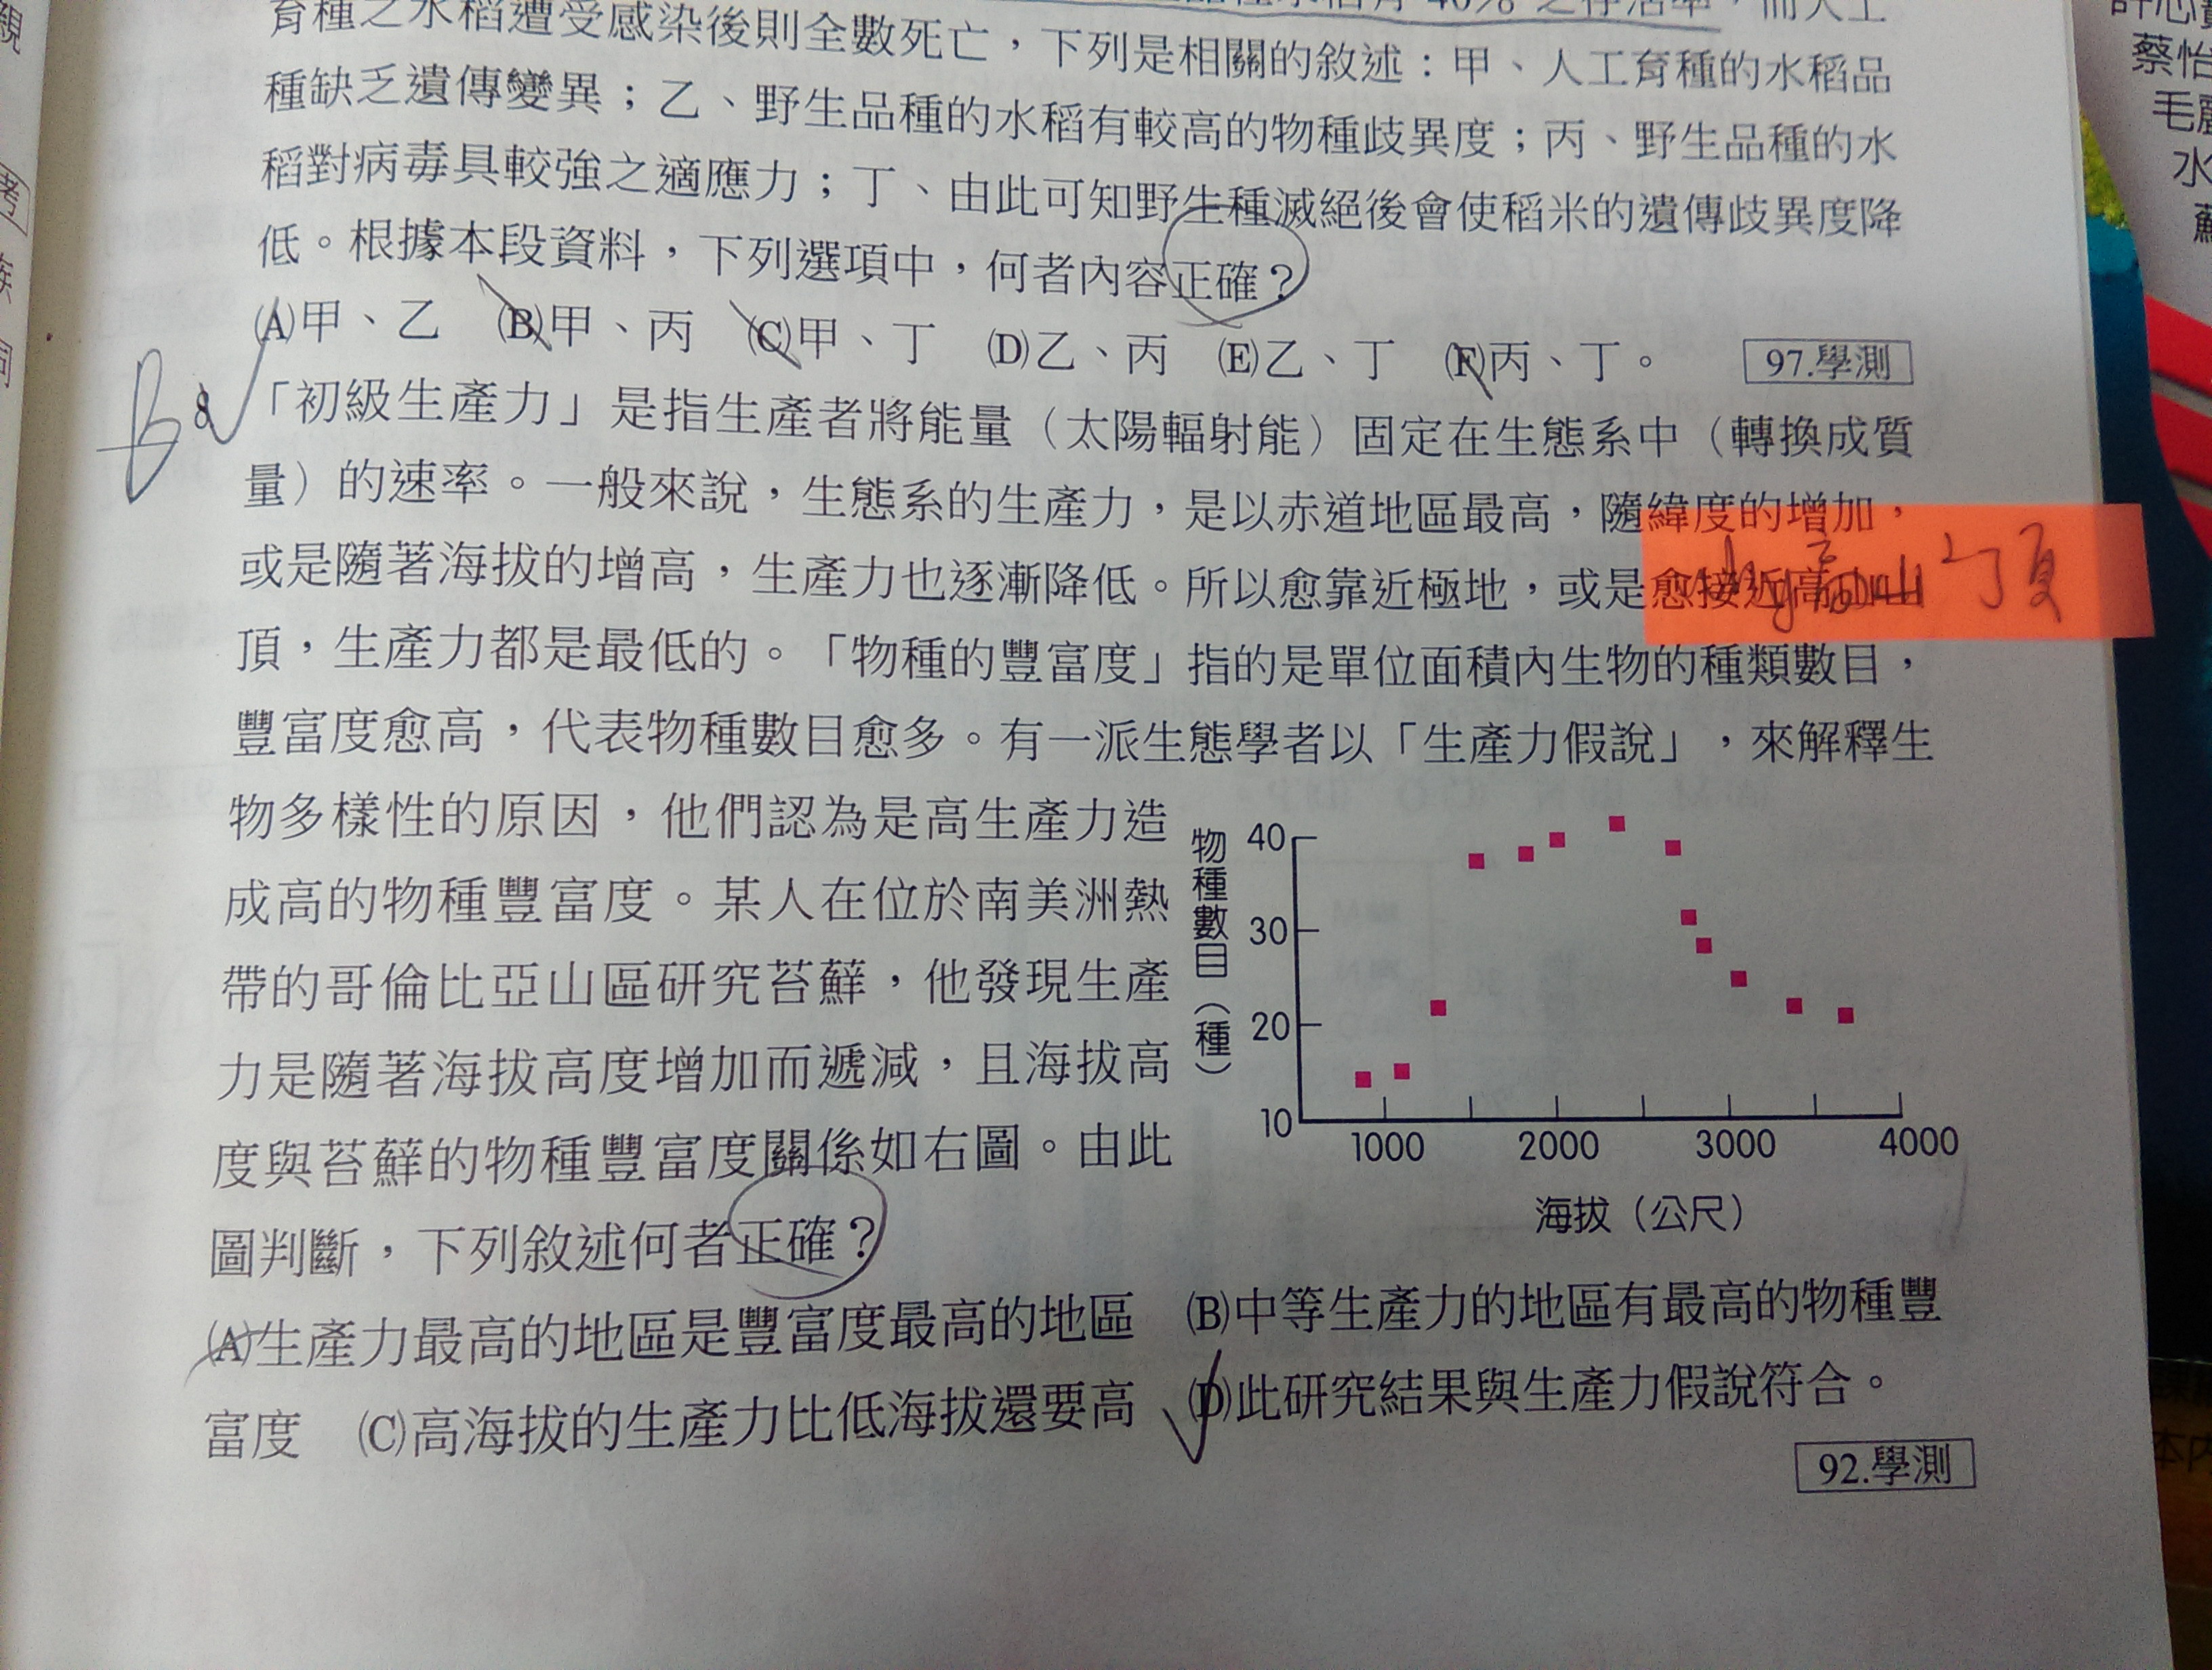 育種之水稻遭受感染後則全數死亡，下列是相關的敘述：甲、人工育種的水稻品
種缺乏遺傳變異；乙、野生品種的水稻有較高的物種歧異度；丙、野生品種的水
稻對病毒具較強之適應力；丁、由此可知野生種滅絕後會使稻米的遺傳歧異度降
低。根據本段資料，下列選項中，何者內容正確？
(A)甲、乙　(B)甲、丙　(C)甲、丁　(D)乙、丙　(E)乙、丁　(F)丙、丁。　97.學測
B 8.「初級生產力」是指生產者將能量（太陽輻射能）固定在生態系中（轉換成質
量）的速率。一般來說，生態系的生產力，是以赤道地區最高，隨緯度的增加，
或是隨著海拔的增高，生產力也逐漸降低。所以愈靠近極地，或是愈接近高山
頂，生產力都是最低的。「物種的豐富度」指的是單位面積內生物的種類數目，
豐富度愈高，代表物種數目愈多。有一派生態學者以「生產力假說」，來解釋生
物多樣性的原因，他們認為是高生產力造
成高的物種豐富度。某人在位於南美洲熱
帶的哥倫比亞山區研究苔蘚，他發現生產
力是隨著海拔高度增加而遞減，且海拔高
度與苔蘚的物種豐富度關係如右圖。由此
圖判斷，下列敘述何者正確？
物種數目（種）
40
30
20
10
1000 2000 3000 4000
海拔（公尺）
(A)生產力最高的地區是豐富度最高的地區　(B)中等生產力的地區有最高的物種豐
富度　(C)高海拔的生產力比低海拔還要高　(D)此研究結果與生產力假說符合。
92.學測
蔡怡
毛
水